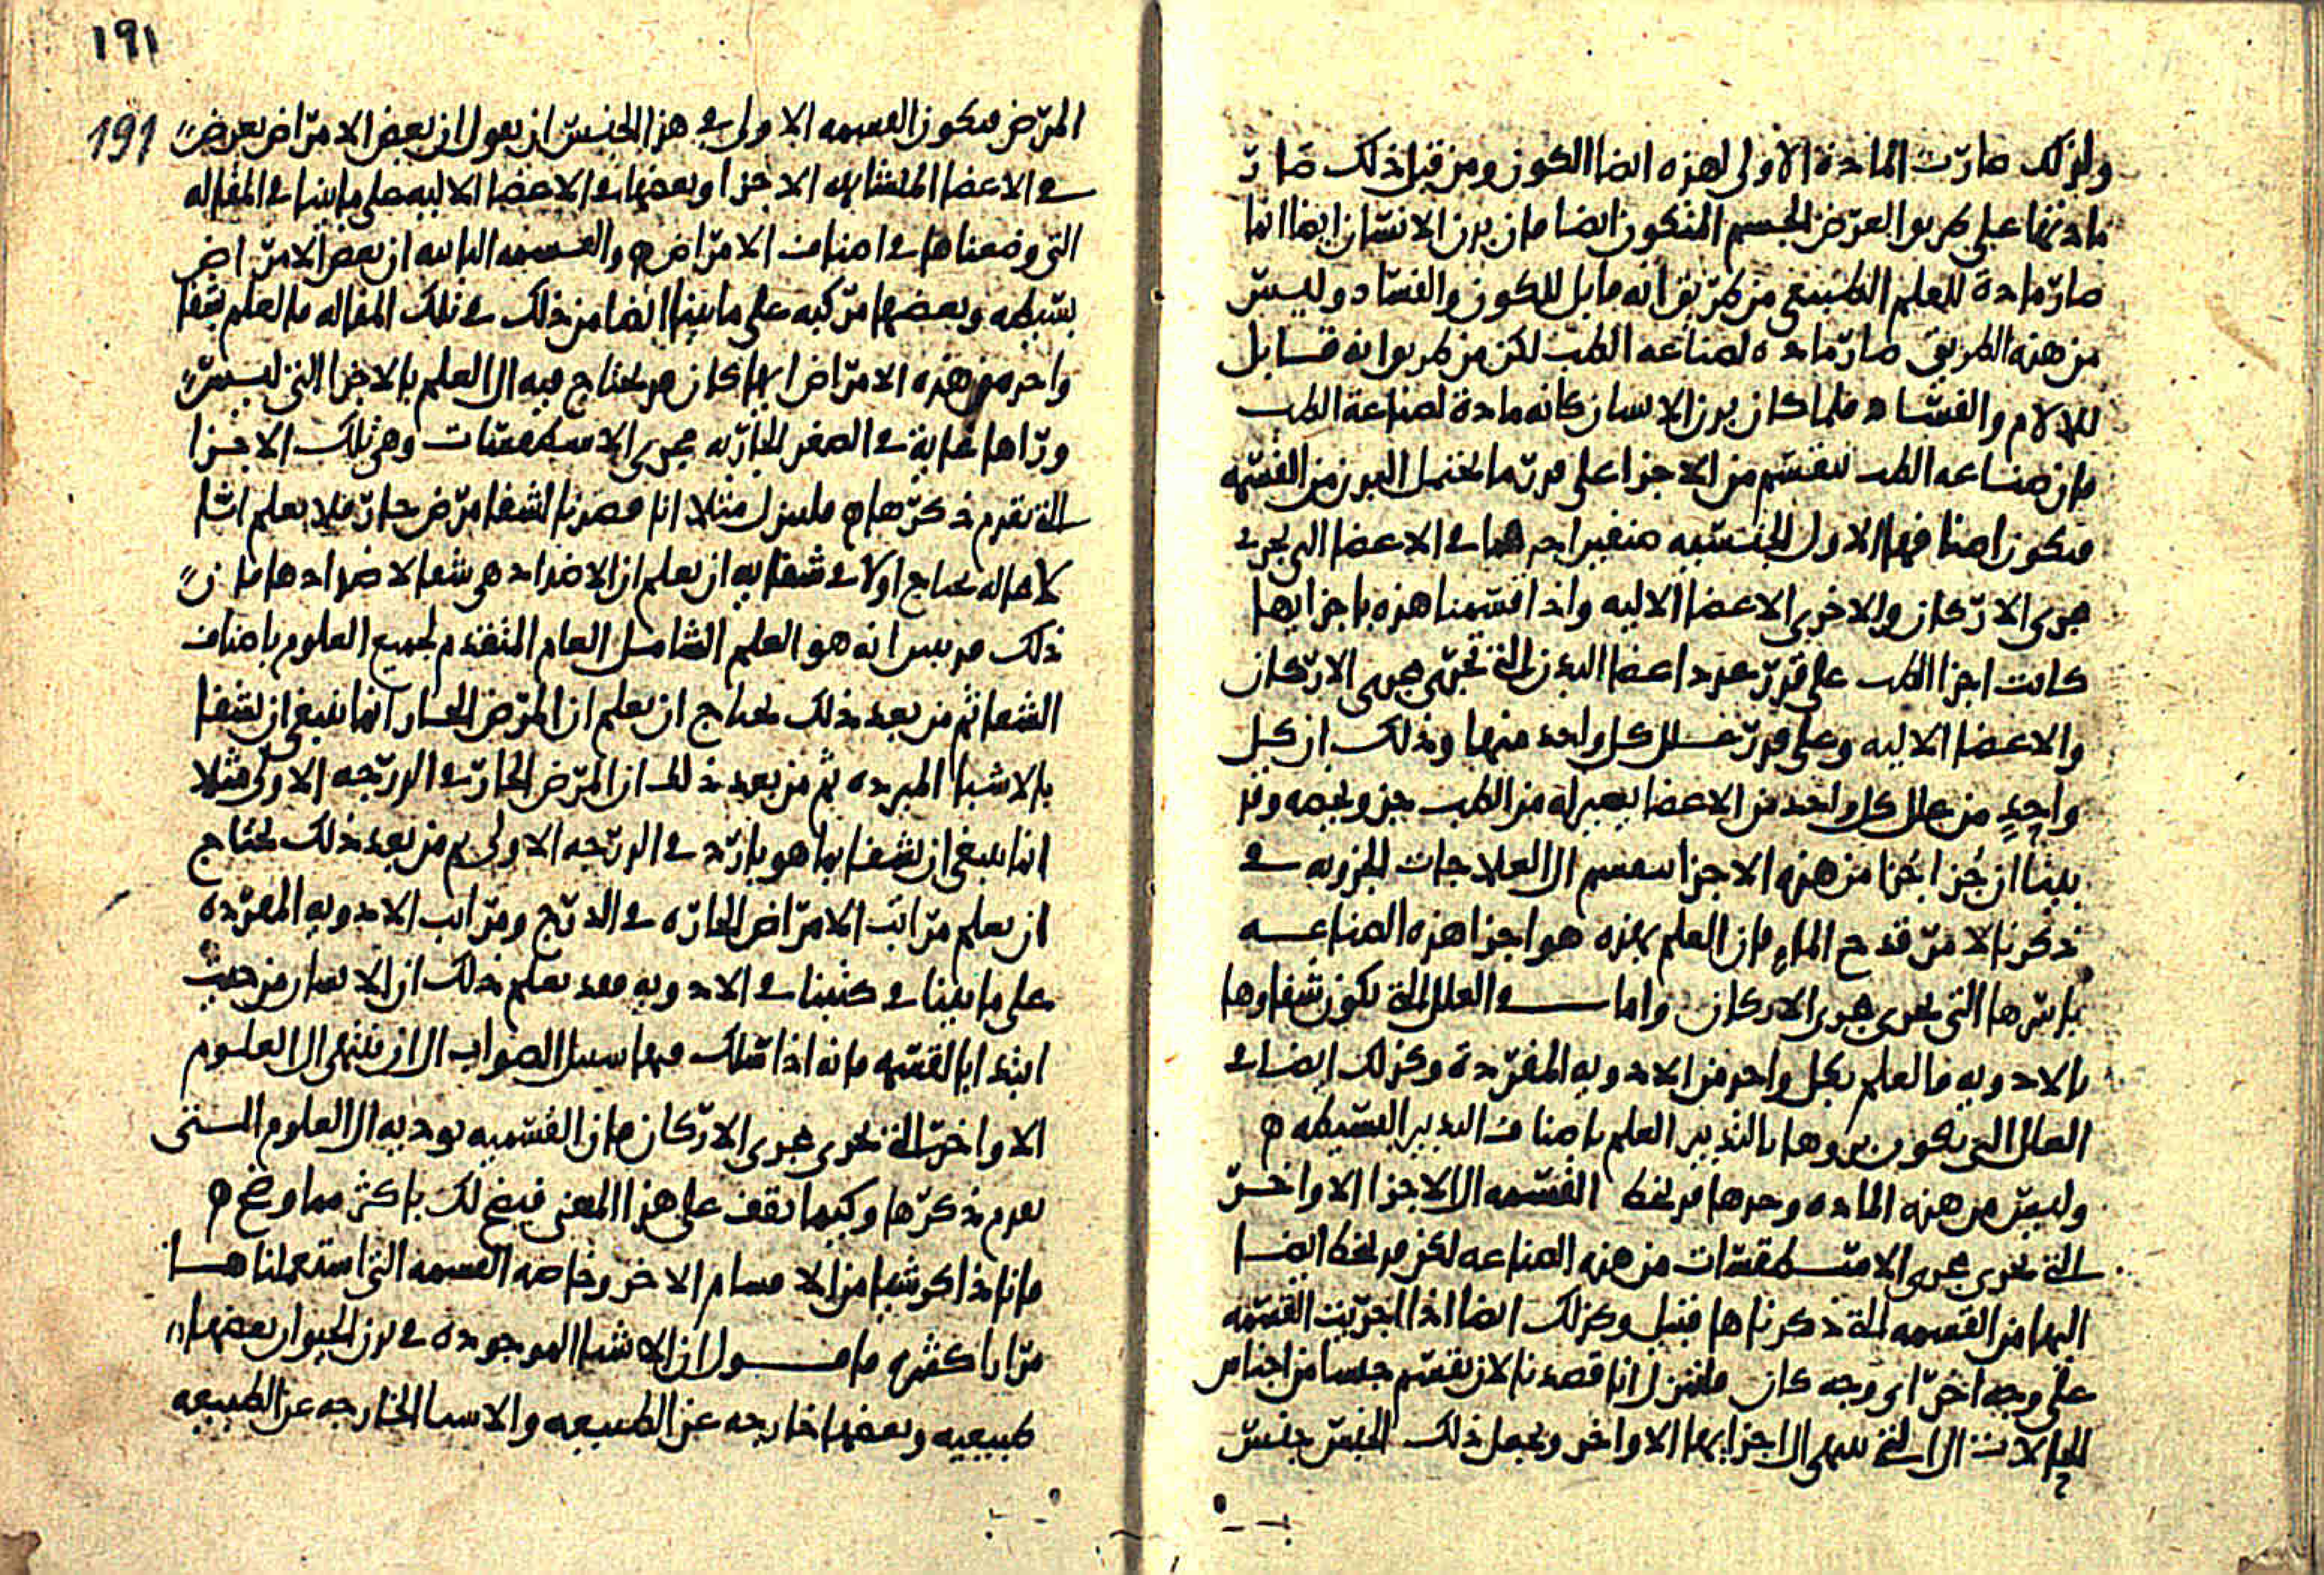 ولذلك صارت المادة الاولى لهذه ايضا الكون ومن قبل ذلك صارت
مادتها على طريق العرض الجسم المتكون ايضا فان بدن الانسان ايضا انما
صار مادة للعلم الطبيعي من طريق انه قابل للكون والفساد وليس
من هذه الطريق صار مادة لصناعه الطب لكن من طريق انه قابل
للالام والفساد فلما كان بدن الانسان كانه مادة لصناعة الطب
فان صناعه الطب تنقسم من الاجزا على قدر ما يحتمل البدن من القسمه
فيكون اصنافها الاول الجنسيه صنفين احدهما في الاعضا التي تجري
مجرى الاركان والاخرى الاعضا الاليه واذا قسمنا هذه باجزايها
كانت اجزا الطب على قدر عدد اعضا البدن التي تجري مجرى الاركان
والاعضا الاليه وعلى قدر علل كل واحد منها وذلك ان كل
واحد من علل كل واحد من الاعضا يصير له من الطب جزو يخصه وقد
بينا ان جزا جزا من هذه الاجزا ينقسم الى العلاجات الجزويه
ذكرنا لامر قدح الماء فان العلم بهذه هو اجزا هذه الصناعه
باسرها التي تجري مجرى الاركان واما في العلل التي يكون شفاوها
بالادويه فالعلم بكل واحد من الادويه المفردة وكذلك ايضا في
العلل التي يكون بروها بالتدبير العلم باصناف التدبير البسيطه ه
وليس من هذه الماده وحدها قد تحط القسمه الى الاجزا الاواخر
التي تجري مجرى الاسطقسات من هذه الصناعه لكن قد تحط ايضا
اليها من القسمه التي ذكرناها قبيل وكذلك ايضا اذا اجريت القسمه
على وجه اخر اي وجه كان فلننزل انا قصدنا لان نقسم جنسا من اجناس
الحالات الى ان ننتهي الى اجزايها الاواخر ونجعل ذلك الجنس جنس
١٩١
191
المرض فيكون القسمه الاولى في هذا الجنس ان نقول ان بعض الامراض يعرض
في الاعضا المتشابهه الاجزا وبعضها في الاعضا الاليه على ما بينا في المقاله
التي وضعناها في اصناف الامراض ه والقسمه الثانيه ان بعض الامراض
بسيطه وبعضها مركبه على ما بينا ايضا من ذلك في تلك المقاله فالعلم بشفا
واحد من هذه الامراض ايها كان قد يحتاج فيه الى العلم بالاجزا التي ليس
وراها غاية في الصغر الجاريه مجرى الاسطقسات وهي تلك الاجزا
التي تقدم ذكرها ه فلننزل مثلا انا قصدنا لشفا مرض حار فلا يعلم انا
لا محاله نحتاج اولا في شفايه ان نعلم ان الاضداد هي شفا لاضدادها فان
ذلك قد تبين انه هو العلم الشامل العام المتقدم لجميع العلوم باصناف
الشفا ثم من بعد ذلك نحتاج ان نعلم ان المرض الحار انما ينبغي ان يشفا
بالاشيا المبرده ثم من بعد ذلك ان المرض الحار في الدرجه الاولى مثلا
انما ينبغي ان يشفا بما هو بارد في الدرجه الاولى ثم من بعد ذلك نحتاج
ان نعلم مراتب الامراض الحاره في الدرج ومراتب الادويه المفرده
على ما بينا في كتبنا في الادويه فقد نعلم ذلك ان الانسان من حيث
ابتدا بالقسمه فانه اذا سلك فيها سبيل الصواب الى ان ينتهي الى العلوم
الاواخر التي تجري مجرى الاركان فان القسميه توديه الى العلوم التي
تقدم ذكرها وكيما تقف على هذا المعنى فيضح لك باكثر مما وضح ه
فانا ذاكر شيا من الاقسام الاخر وخاصه القسمه التي استعملناها
مرارا كثيره فاقول ان الاشيا الموجوده في بدن الحيوان بعضها
طبيعيه وبعضها خارجه عن الطبيعه والاشيا الخارجه عن الطبيعه